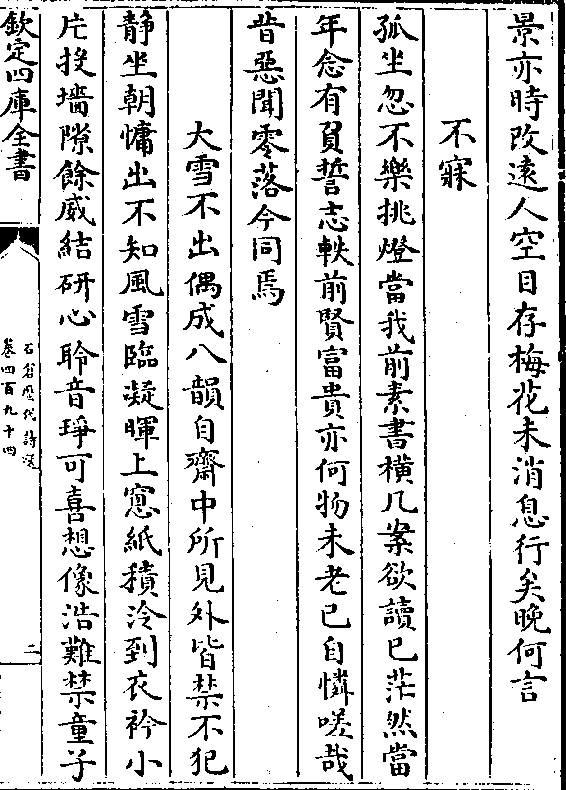 景亦時改遠人空目存梅花未消息行矣晚何言
不寐
孤坐忽不樂挑燈當我前素書橫几案欲讀已茫然當
年念有負誓志軼前賢富貴亦何物未老已自憐嗟哉
昔惡聞零落今同焉
大雪不出偶成八韻自齋中所見外皆禁不犯
静坐朝慵出不知風雪臨凝暉上窻紙積冷到衣衿小
片投墻隙餘威結研心聆音琤可喜想像浩難禁童子
欽定四庫全書
石倉歷代詩選
卷四百九十四
二